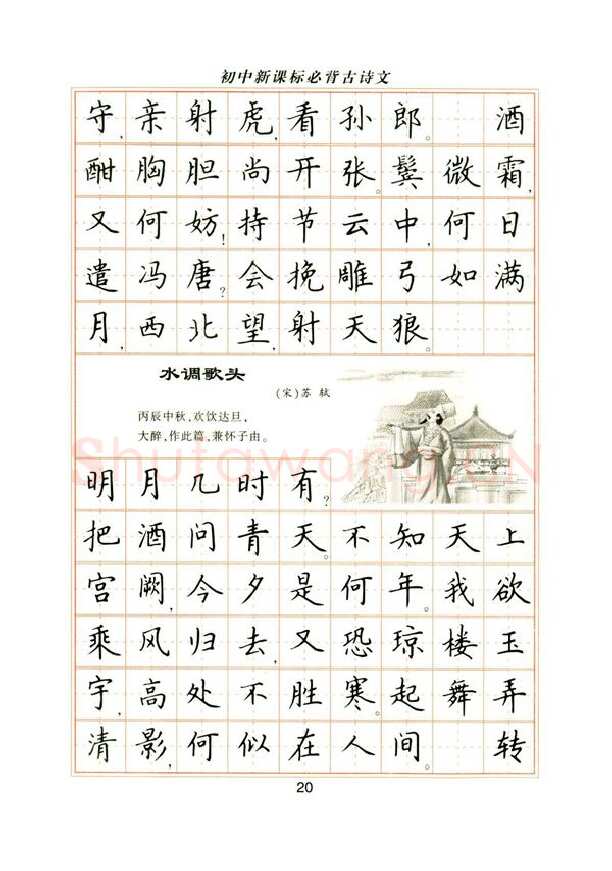 初中新课标必背古诗文
守,亲射虎,看孙郎。 酒
酣胸胆尚开张。鬓微霜,
又何妨!持节云中,何日
遣冯唐?会挽雕弓如满
月,西北望,射天狼。
水调歌头
(宋)苏轼
丙辰中秋,欢饮达旦,
大醉,作此篇,兼怀子由。
Shufawang.CN
明月几时有?
把酒问青天。不知天上
宫阙,今夕是何年。我欲
乘风归去,又恐琼楼玉
宇,高处不胜寒。起舞弄
清影,何似在人间。 转
20